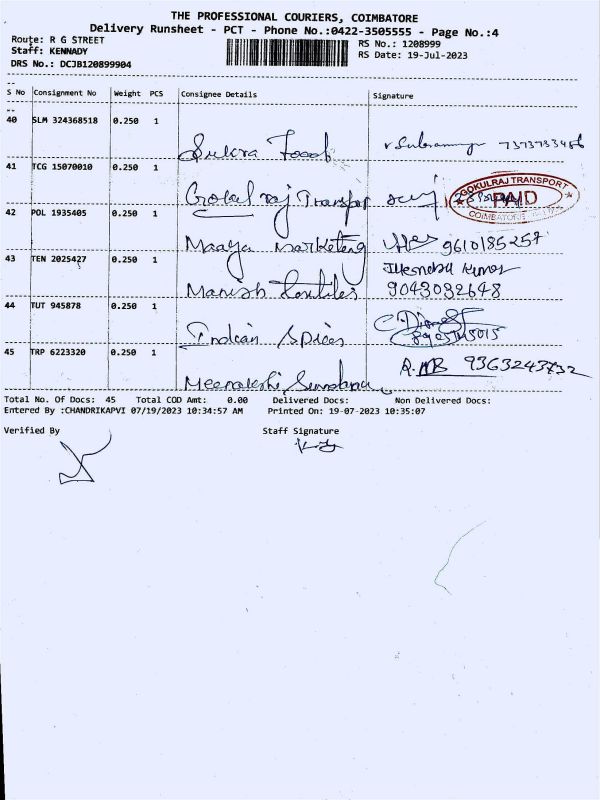 THE PROFESSIONAL COURIERS, COIMBATORE
Delivery Runsheet - PCT - Phone No.:0422-3505555 - Page No.:4
Route: R G STREET
RS No.: 1208999
Staff: KENNADY
RS Date: 19-Jul-2023
DRS No.: DCJB120899904
S No Consignment No Weight PCS Consignee Details Signature
40 SLM 324368518 0.250 1
Sukra Foods
41 TCG 15070010 0.250 1
Gokul raj Transpor
GOKULRAJ TRANSPORT
PAID
COIMBATORE
42 POL 1935405 0.250 1
Maaya marketing 9610185257
43 TEN 2025427 0.250 1
Kumar
Manish Textiles 9043092648
44 TUT 945878 0.250 1
Indian Spices
45 TRP 6223320 0.250 1
9363243732
Meenakshi
Total No. Of Docs: 45 Total COD Amt: 0.00 Delivered Docs: Non Delivered Docs:
Entered By :CHANDRIKAPVI 07/19/2023 10:34:57 AM Printed On: 19-07-2023 10:35:07
Verified By Staff Signature